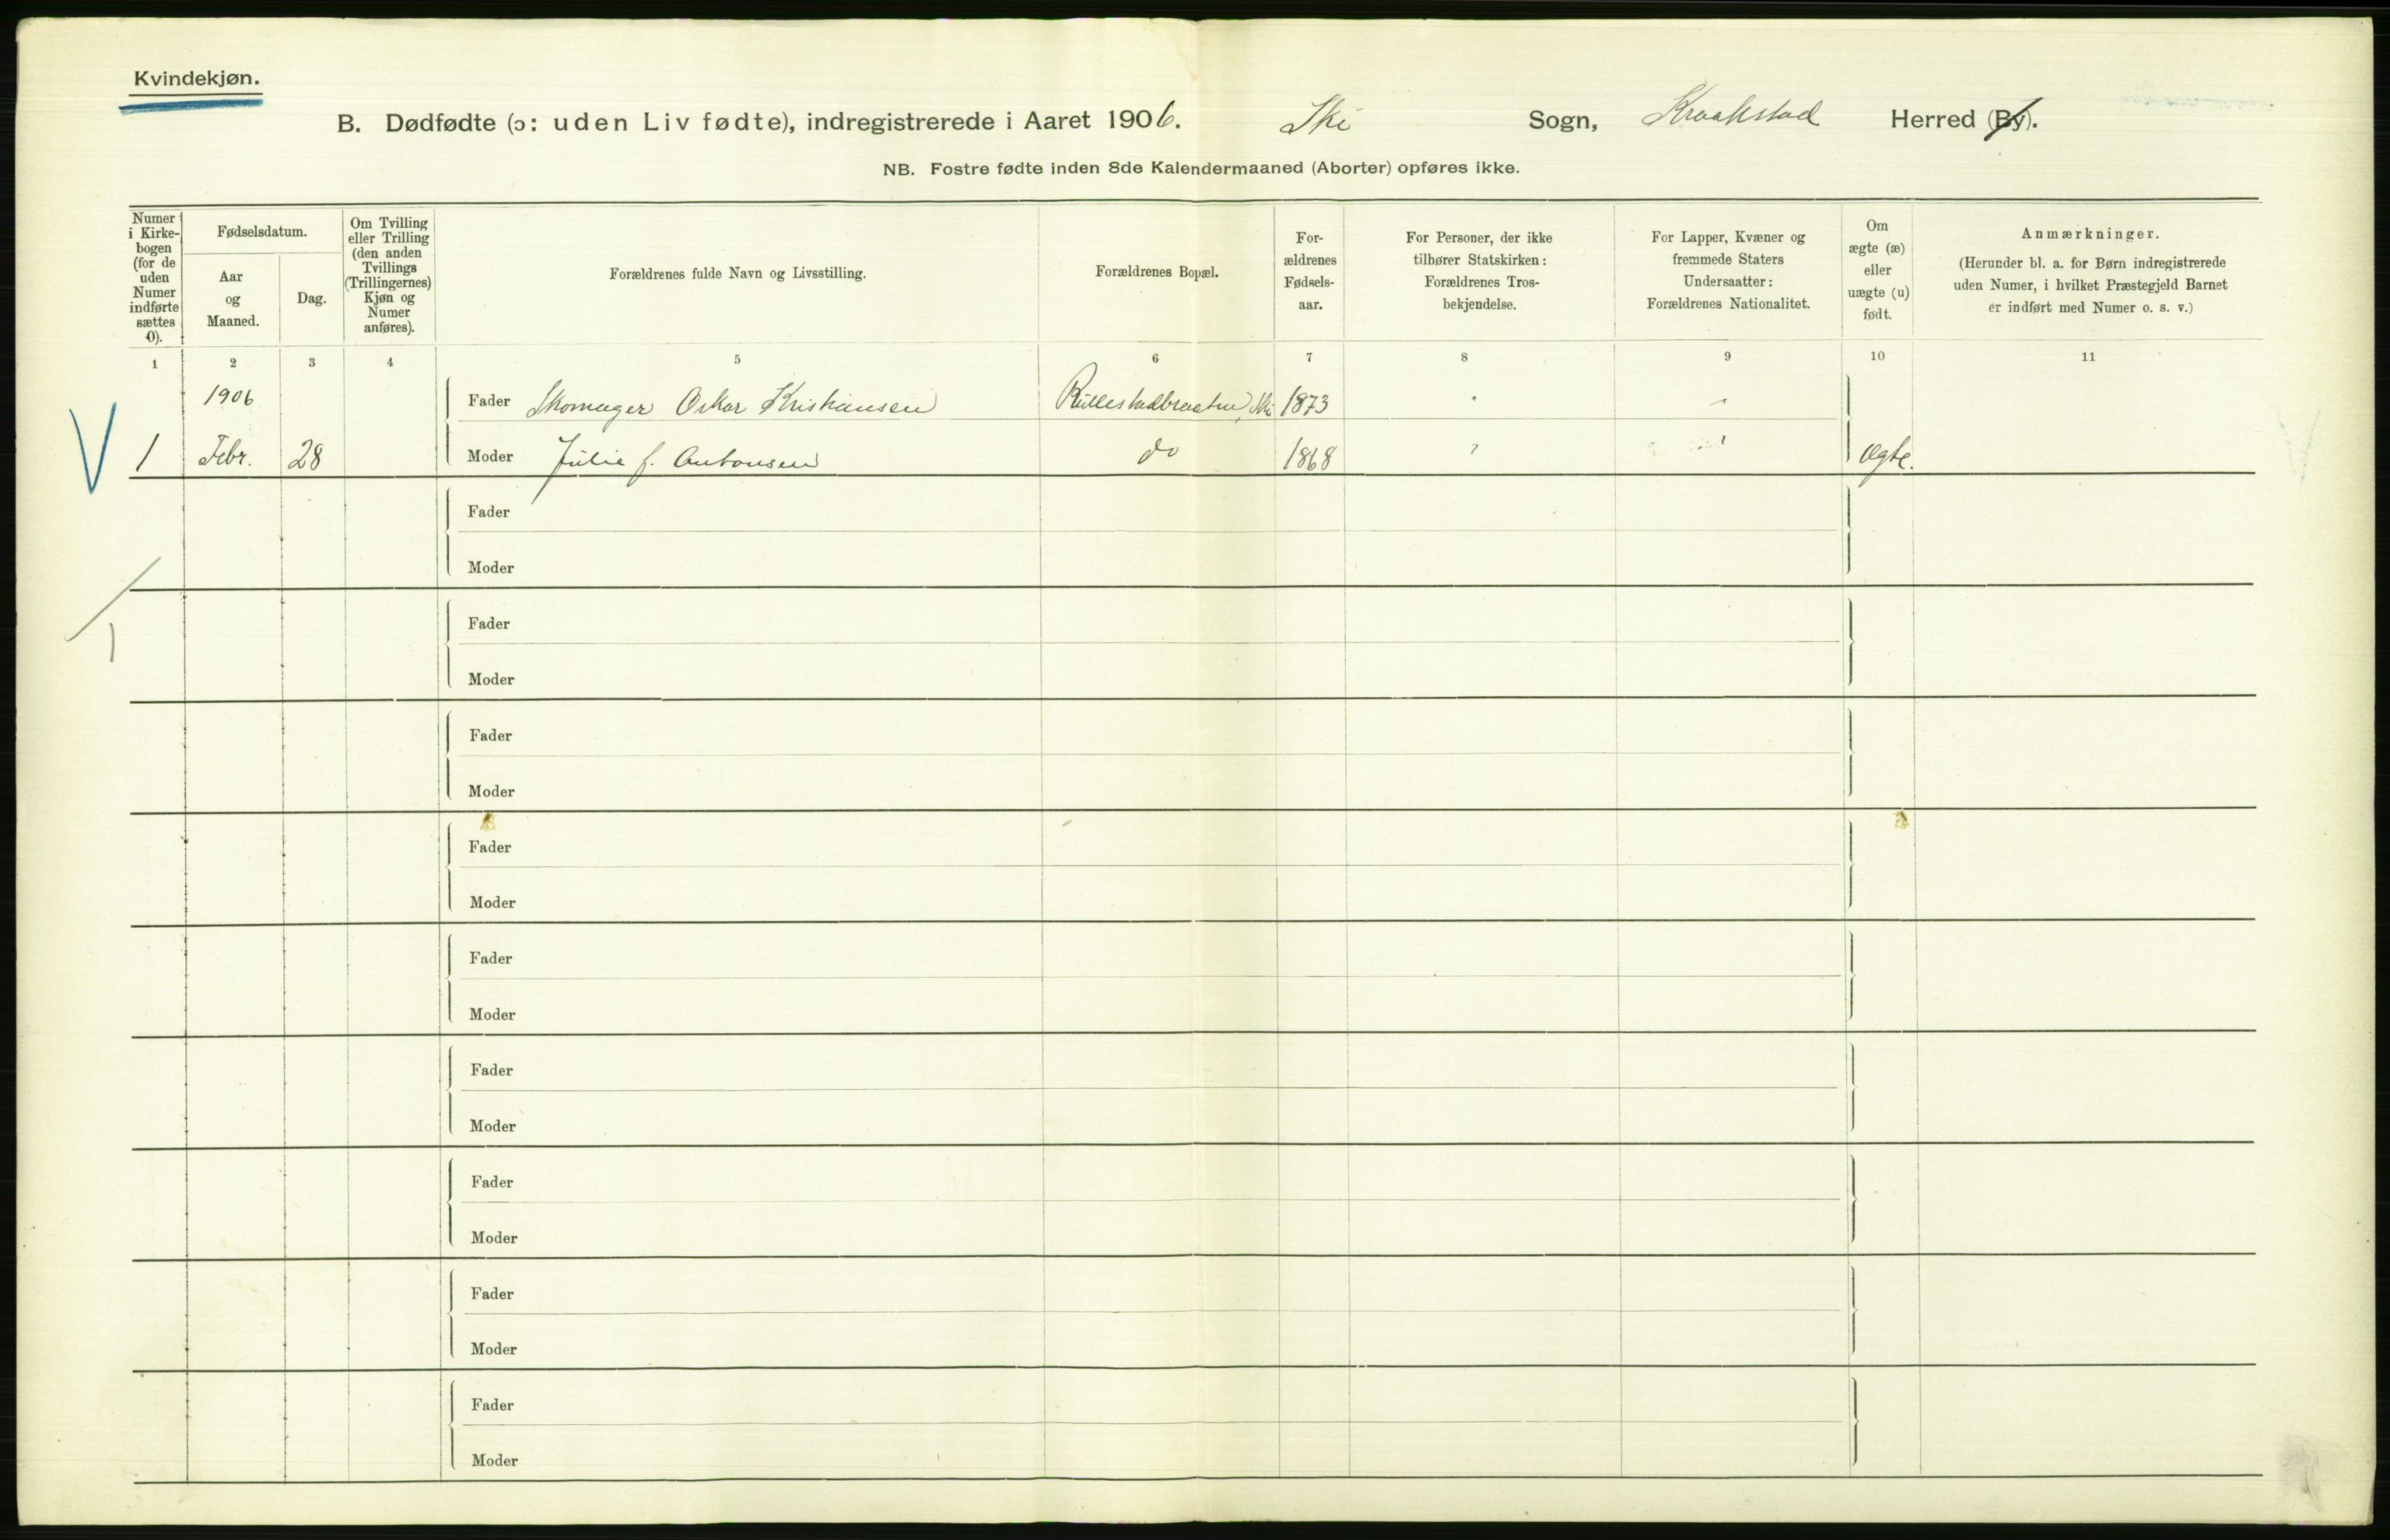 Kvindekjøn.
B. Dødfødte (ɔ: uden Liv fødte), indregistrerede i Aaret 1906. Ski Sogn, Kraakstad Herred (By).
NB. Fostre fødte inden 8de Kalendermaaned (Aborter) opføres ikke.
Numer i Kirke-bogen (for de uden Numer indførte sættes 0).
Fødselsdatum.
Aar og Maaned.
Dag.
Om Tvilling eller Trilling (den anden Tvillings (Trillingernes) Kjøn og Numer anføres).
Forældrenes fulde Navn og Livsstilling.
Forældrenes Bopæl.
For-ældrenes Fødsels-aar.
For Personer, der ikke tilhører Statskirken: Forældrenes Tros-bekjendelse.
For Lapper, Kvæner og fremmede Staters Undersaatter: Forældrenes Nationalitet.
Om ægte (æ) eller uægte (u) født.
Anmærkninger.
(Herunder bl. a. for Børn indregistrerede uden Numer, i hvilket Præstegjeld Barnet er indført med Numer o. s. v.)
1 2 3 4 5 6 7 8 9 10 11
1906 Fader Skomager Oskar Kristiansen Rullestadbraaten, Ski 1873 " "
V 1 Febr. 28 Moder Julie f. Antonsen do 1868 " " Ægte.
Fader
Moder
Fader
1
Moder
Fader
Moder
Fader
Moder
Fader
Moder
Fader
Moder
Fader
Moder
Fader
Moder
Fader
Moder